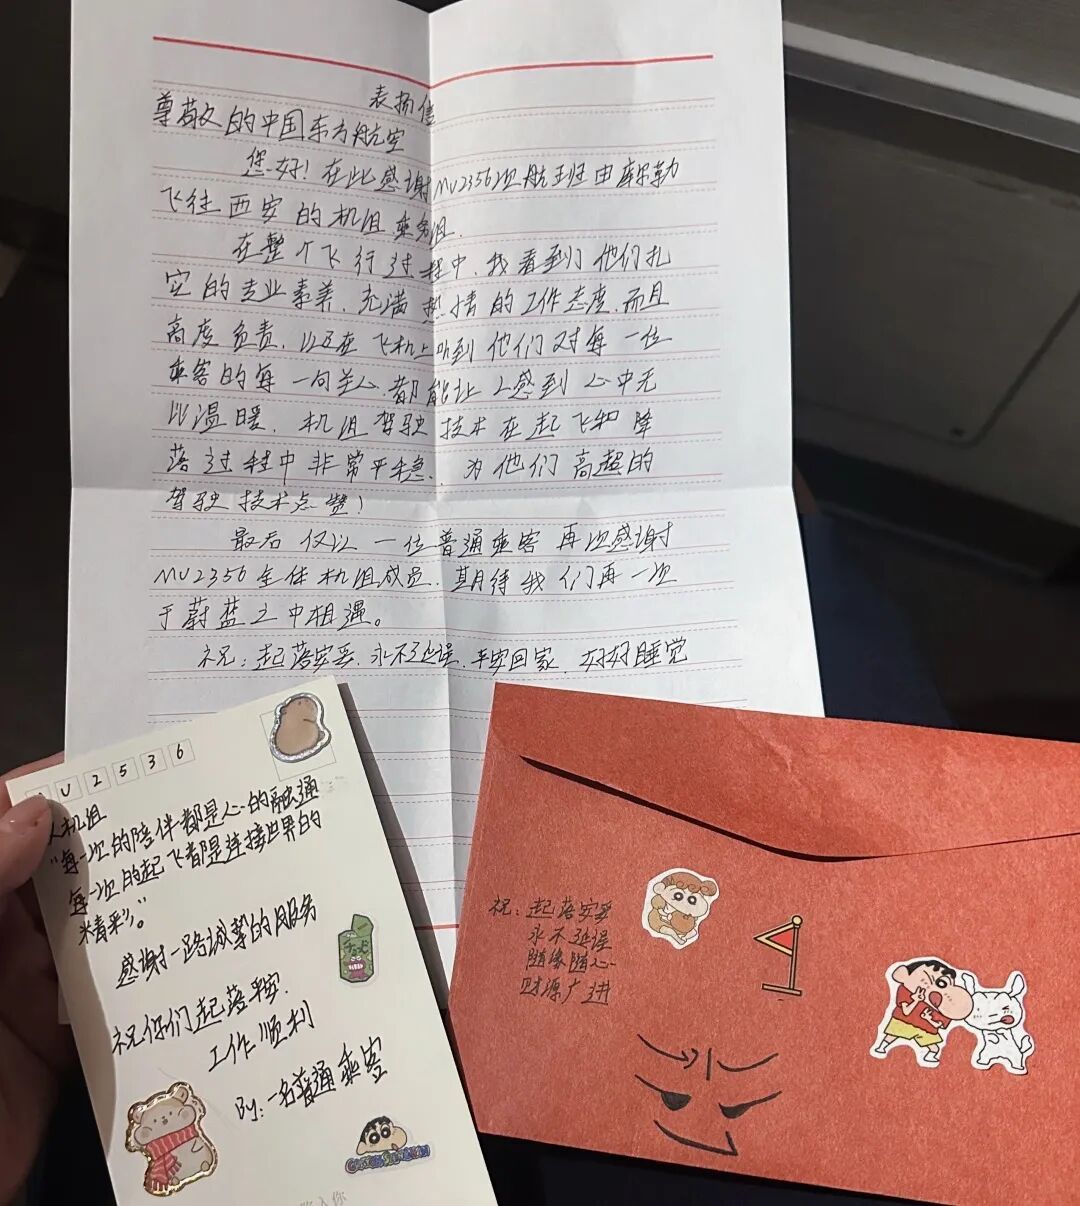 表扬信
尊敬的中国东方航空
您好!在此感谢MU2356次航班由库尔勒
飞往西安的机组乘务组.
在整个飞行过程中,我看到了他们扎
实的专业素养,充满热情的工作态度,而且
高度负责,以及在飞机上听到他们对每一位
乘客的每一句关心,都能让人感到心中无
比温暖,机组驾驶技术在起飞和降
落过程中非常平稳,为他们高超的
驾驶技术点赞!
最后仅以一位普通乘客再次感谢
MU2356全体机组成员,期待我们再一次
于蔚蓝之中相遇。
祝:起落安妥,永不延误,平安回家,好好睡觉
U2536
机组
"每一次的陪伴都是心的融通
每一次的起飞都是连接世界的
精彩。"
感谢一路诚挚的服务
祝你们起落平安.
工作顺利
By:一名普通乘客
祝:起落安妥
永不延误
随缘随心
财源广进